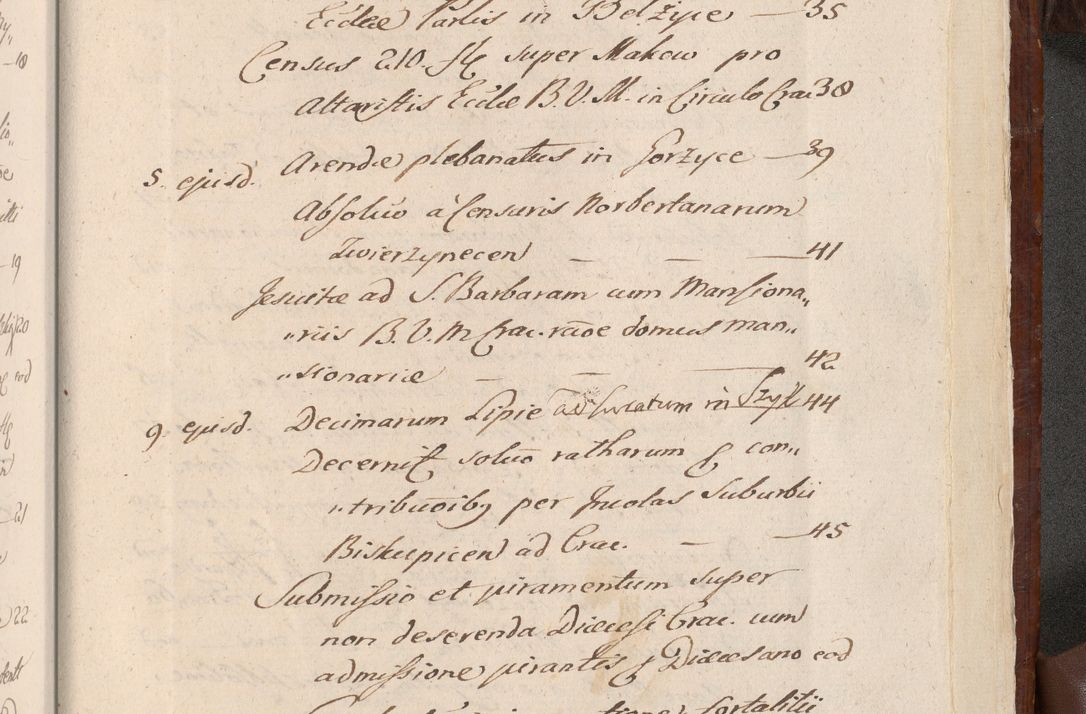 Eccłæ Parlis in Belżyce — 35
Census 210. fł. super Makow pro
Altaristis Eccłæ B. V. M. in Circulo Crac 38
Arendæ plebanatus in Gorzyce — 39
5. ejusd. Absoluo à Censuris Norbertanarum
Zwierzynecen — — — 41
Jesuitæ ad S. Barbaram cum Mansiona„
„riis B. V. M. Crac. raōe domus man„
„sionariæ — — 42
9. ejusd. Decimarum Lipie ad Curatum in Szyk 44
Decernit soluō ratharum & con„
„tribuōibg per Incolas Suburbii
Biskupicen ad Crac. — — 45
Submissio et juramentum super
non deserenda Diæcesi Crac. cum
admissione jurantis & Diæcesano eod